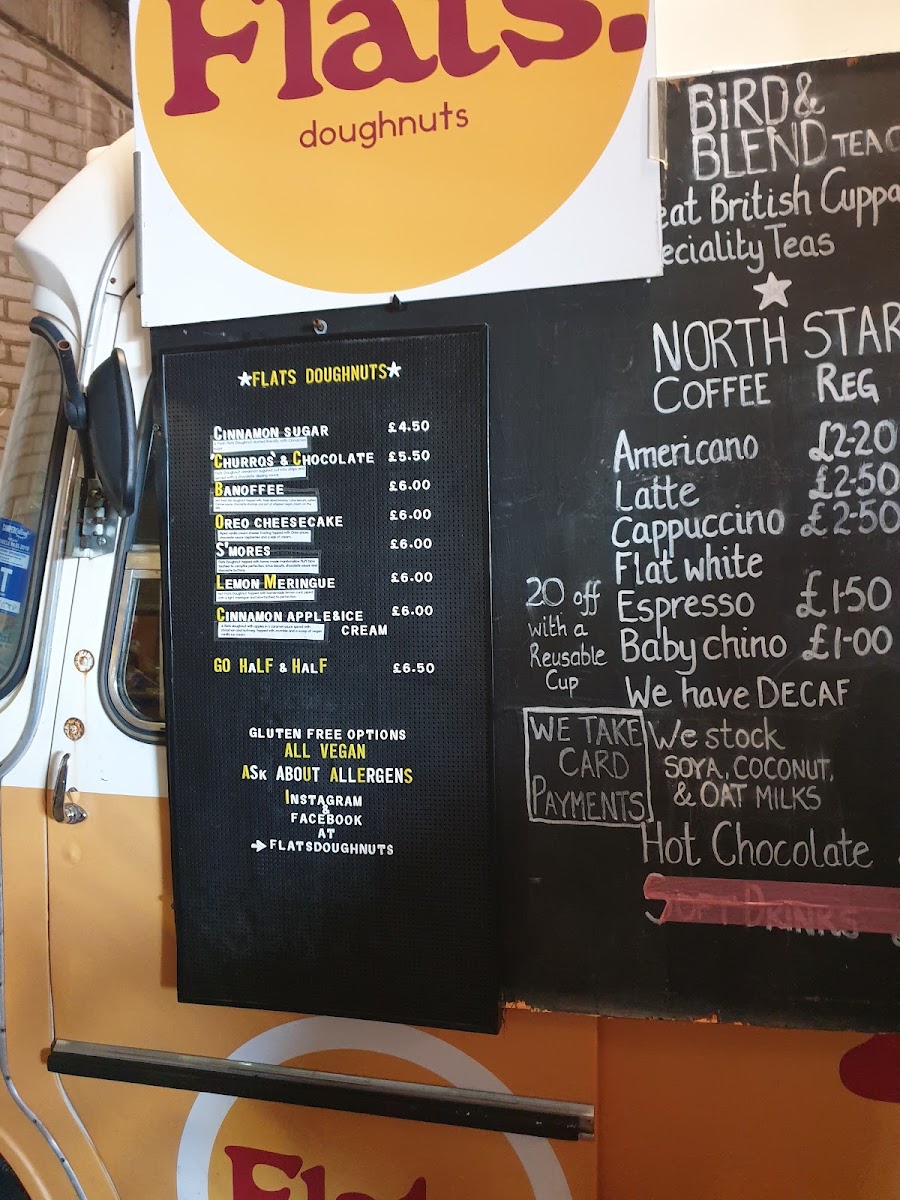 Flats.
doughnuts
★FLATS DOUGHNUTS★
CINNAMON SUGAR £4.50
'CHURROS' & CHOCOLATE £5.50
BANOFFEE £6.00
OREO CHEESECAKE £6.00
S'MORES £6.00
LEMON MERINGUE £6.00
CINNAMON APPLE&ICE £6.00
CREAM
GO HALF & HALF £6.50
GLUTEN FREE OPTIONS
ALL VEGAN
ASK ABOUT ALLERGENS
INSTAGRAM
&
FACEBOOK
AT
→FLATSDOUGHNUTS
BIRD &
BLEND TEA
British Cuppa
Teas
NORTH STAR
COFFEE REG
Americano £2-20
Latte £2-50
Cappuccino £2-50
Flat white
Espresso £1-50
Babychino £1-00
We have DECAF
20 off
with a
Reusable
Cup
WE TAKE
CARD
PAYMENTS
We stock
SOYA, COCONUT,
& OAT MILKS
Hot Chocolate
Flat